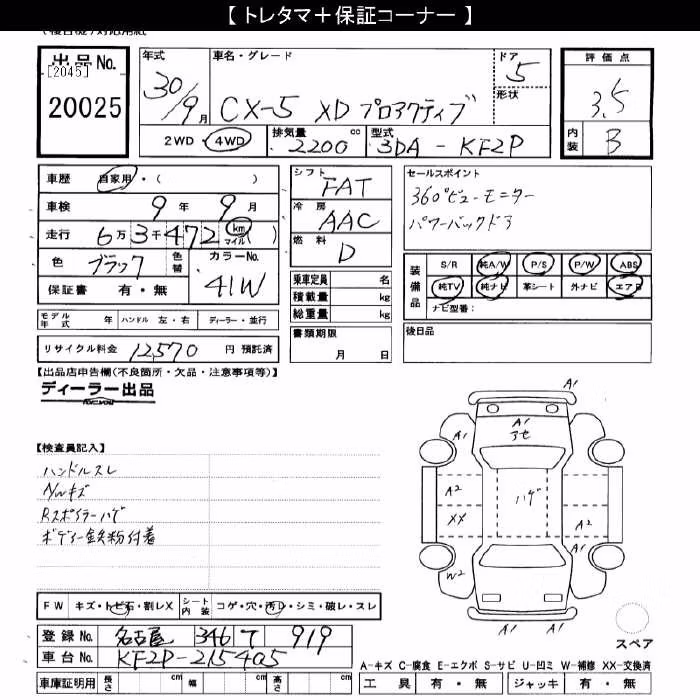 【 トレタマ＋保証コーナー 】
出品No.
[2045]
20025
年式
30/9月
車名・グレード
CX-5 XD プロアクティブ
ドア
5
形状
評価点
3.5
内装
B
2WD ・ 4WD
排気量
2200 cc
型式
3DA - KF2P
車歴 自家用・( )
車検 9 年 9 月
走行 6万3千472 km マイル ( )
色 ブラック 色替 カラーNo. 41W
保証書 有・無
モデル年式 年 ハンドル 左・右 ディーラー・並行
リサイクル料金 12570 円 預託済
シフト FAT
冷房 AAC
燃料 D
乗車定員 名
積載量 kg
総重量 kg
書類期限
月 日
セールスポイント
360°ビューモニター
パワーバックドア
装備品
S/R 純A/W P/S P/W ABS
純TV 純ナビ 革シート 外ナビ エアB
ナビ型番：
後日品
【出品店申告欄(不良箇所・欠品・注意事項等)】
ディーラー出品
【検査員記入】
ハンドルスレ
AWキズ
Rスポイラーハゲ
ボディー鉄粉付着
A1
A1
A1
アセ
A1
A2
XX
ハゲ
A2
A1
W2
A1
A1
スペア
FW キズ・トビ石・割レX シート内装 コゲ・穴・汚レ・シミ・破レ・スレ
登録No. 名古屋 346 テ 919
車台No. KF2P-215405
車庫証明用 長さ cm 幅 cm 高さ cm
A-キズ C-腐食 E-エクボ S-サビ U-凹ミ W-補修 XX-交換済
工具 有・無 ジャッキ 有・無